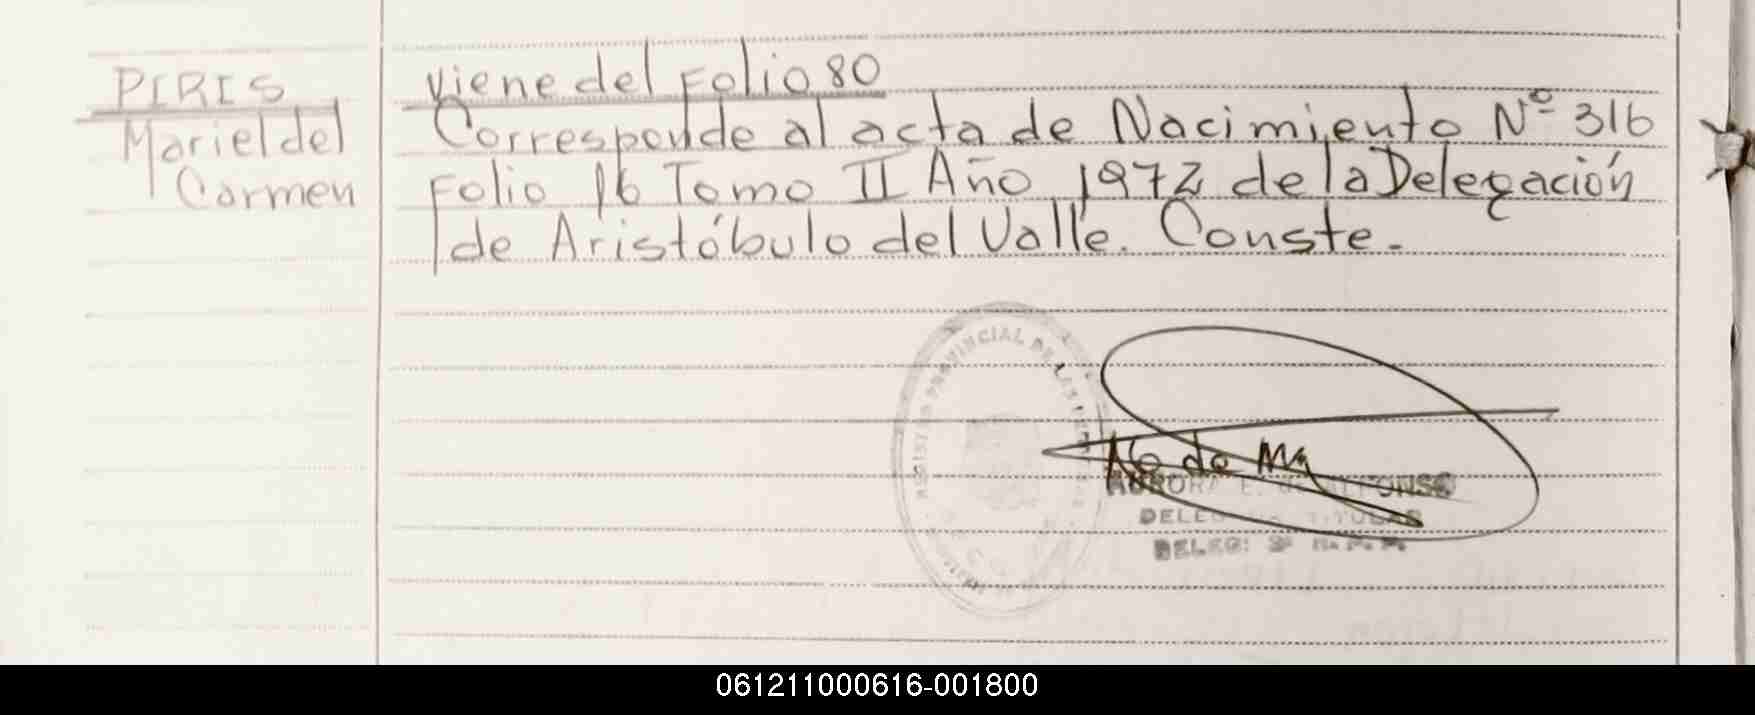 PIRIS
Mariel del
Carmen
Viene del Folio 80
Corresponde al acta de Nacimiento Nº 316
Folio 16 Tomo II Año 1972 de la Delegación
de Aristóbulo del Valle. Conste.-
REGISTRO PROVINCIAL DE LAS
AURORA E. de
DELEG TITULAR
DELEG:
061211000616-001800